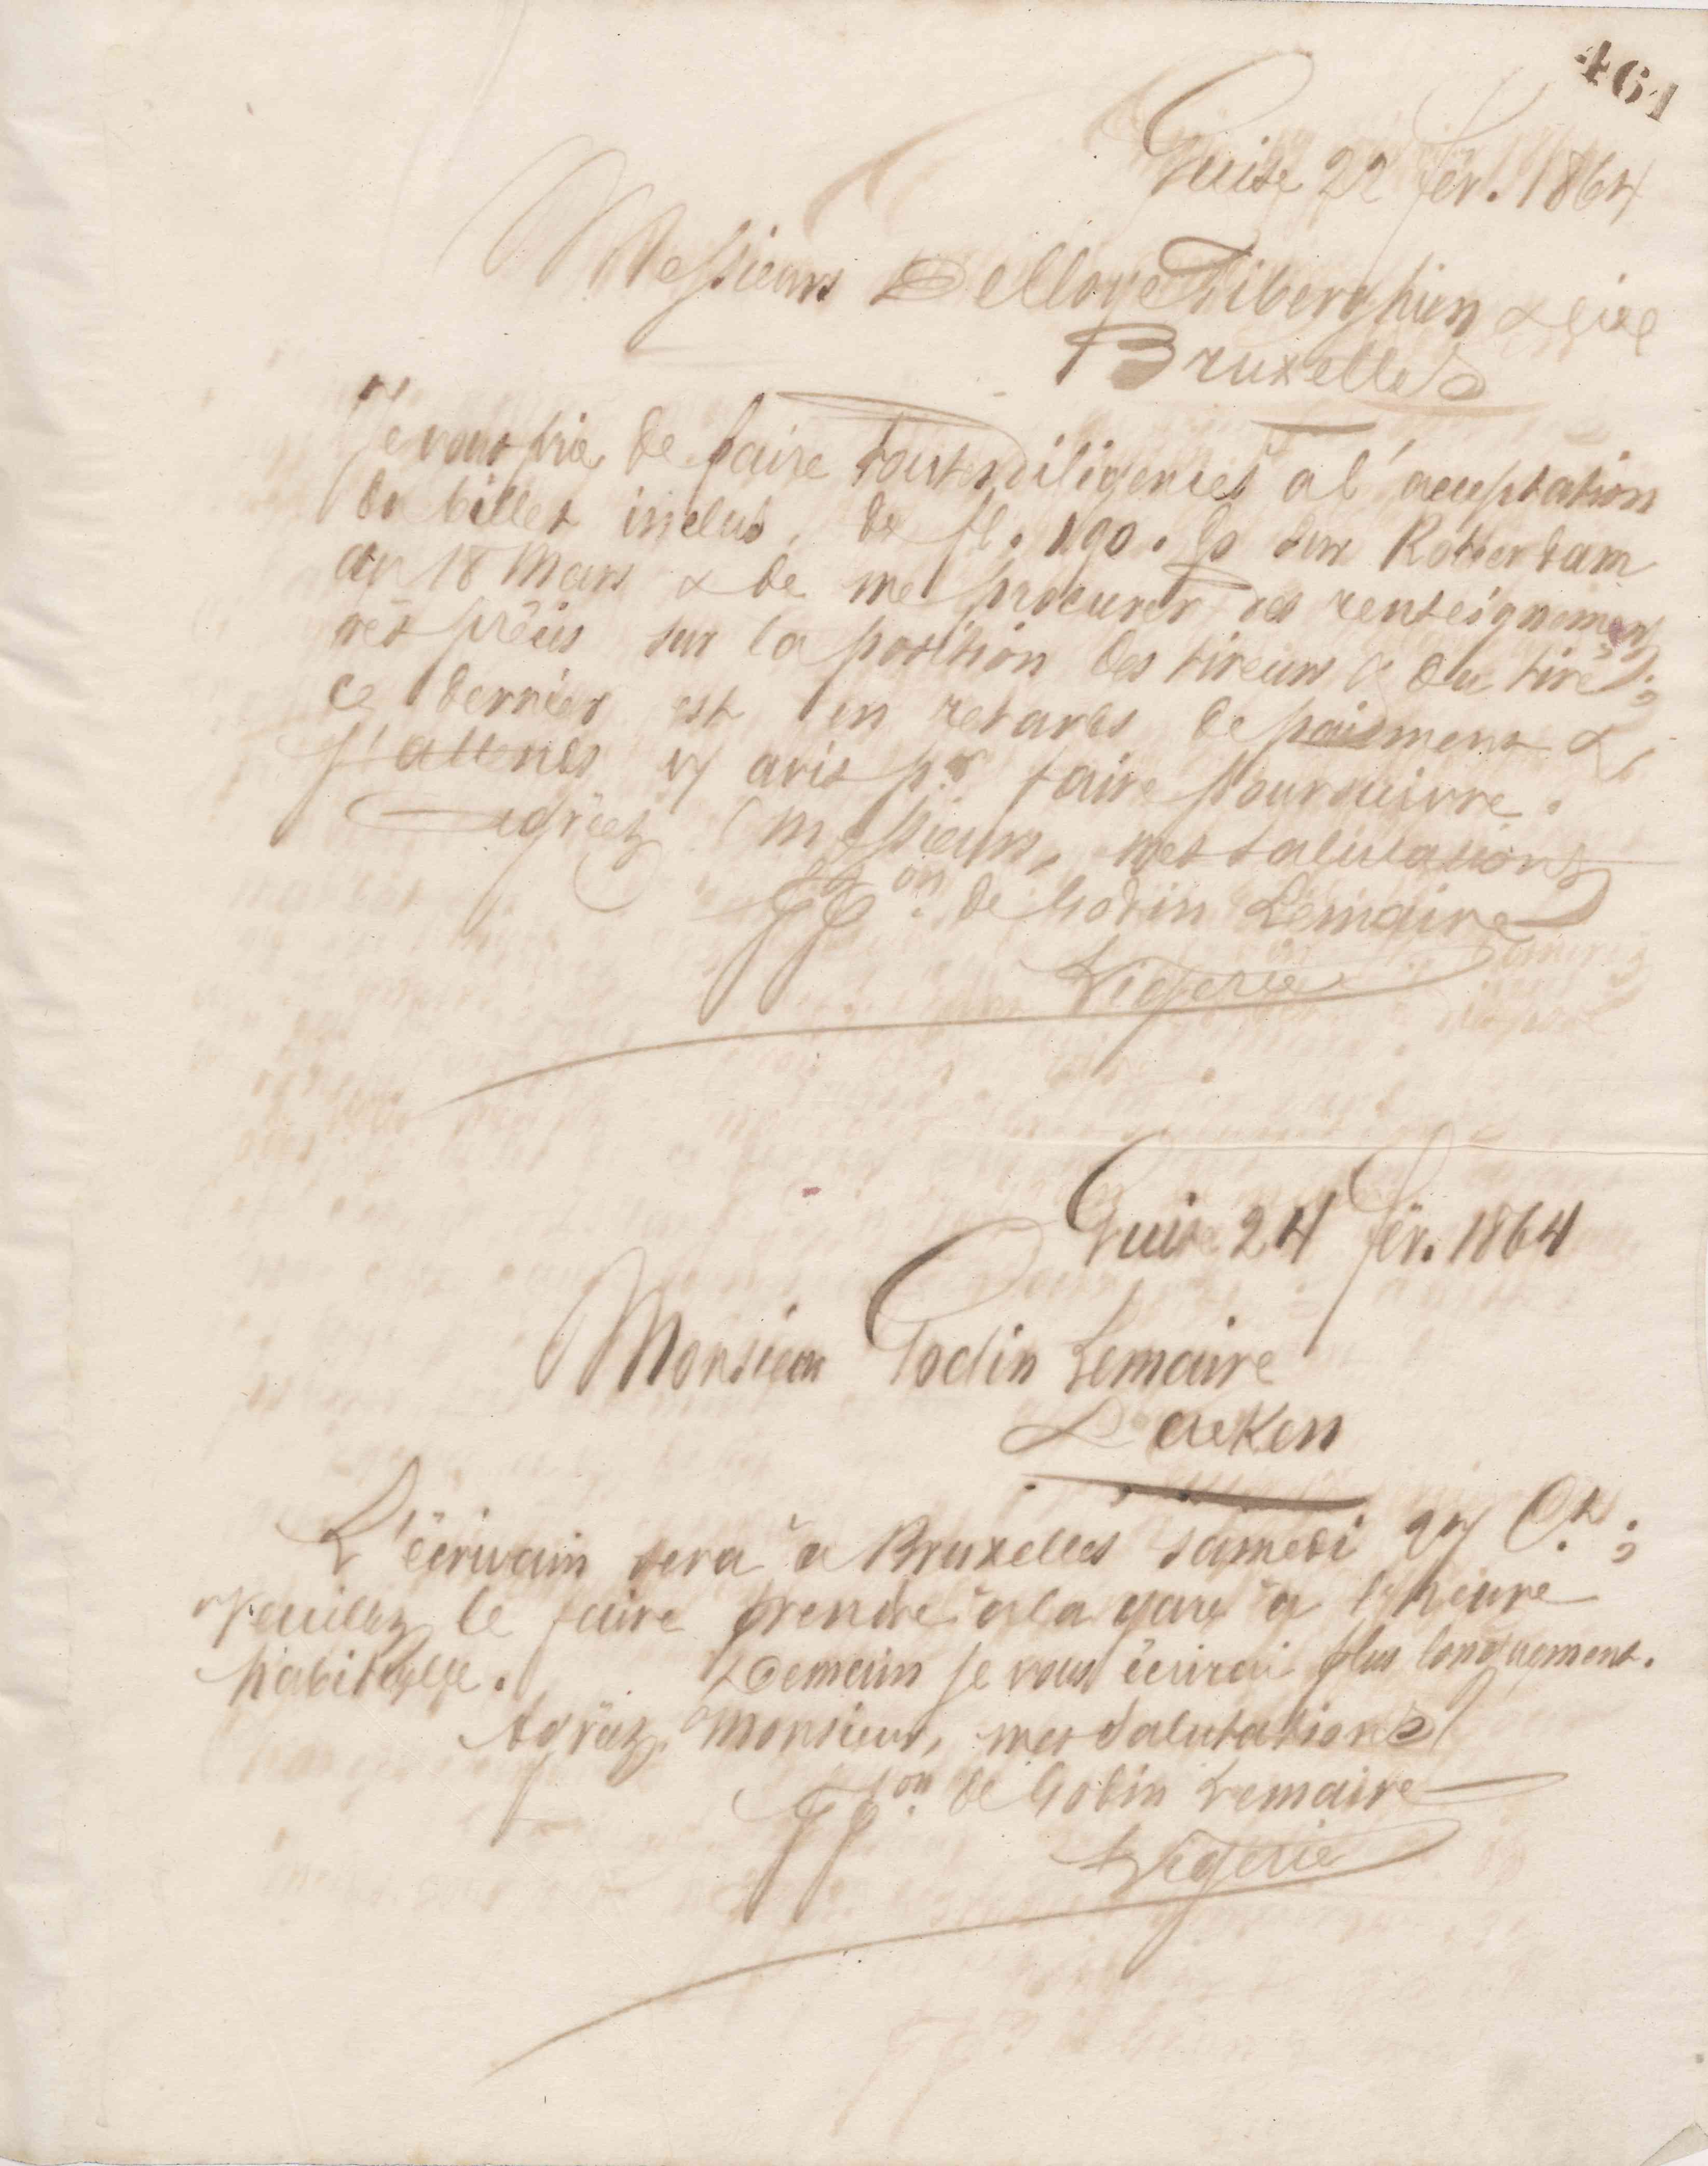 461
Guise 22 fév. 1864
Messieurs Delloye Tiberghien & Cie
Bruxelles
Je vous prie de faire toutes diligences à l'acceptation
du billet inclus, de fl. 190. sur Rotterdam
au 18 Mars & de me procurer des renseignements
très précis sur la position des tireurs & du tiré ;
ce dernier est en retards de paiement &
j'attends v/ avis pr faire poursuivre.
Agréez, Messieurs, mes salutations
ppon. de Godin Lemaire
Vigerie
Guise 24 fév. 1864
Monsieur Godin Lemaire
Laeken
L'écrivain sera à Bruxelles samedi 27 Ct ;
Veuillez le faire prendre à la gare à l'heure
habituelle. Demain je vous écrirai plus longuement.
Agréez, Monsieur, mes salutations
ppon. de Godin Lemaire
Vigerie